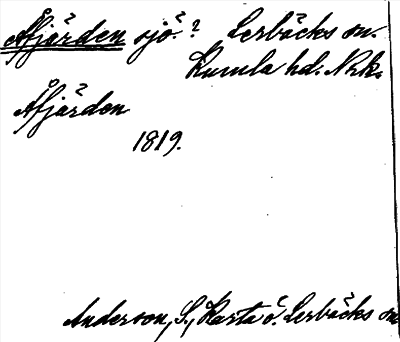 Åfjärden sjö.? Lerbäcks sn.
Kumla hd. Nrk.
Åfjärden
1819.
Anderson, S., Karta ö. Lerbäcks sn